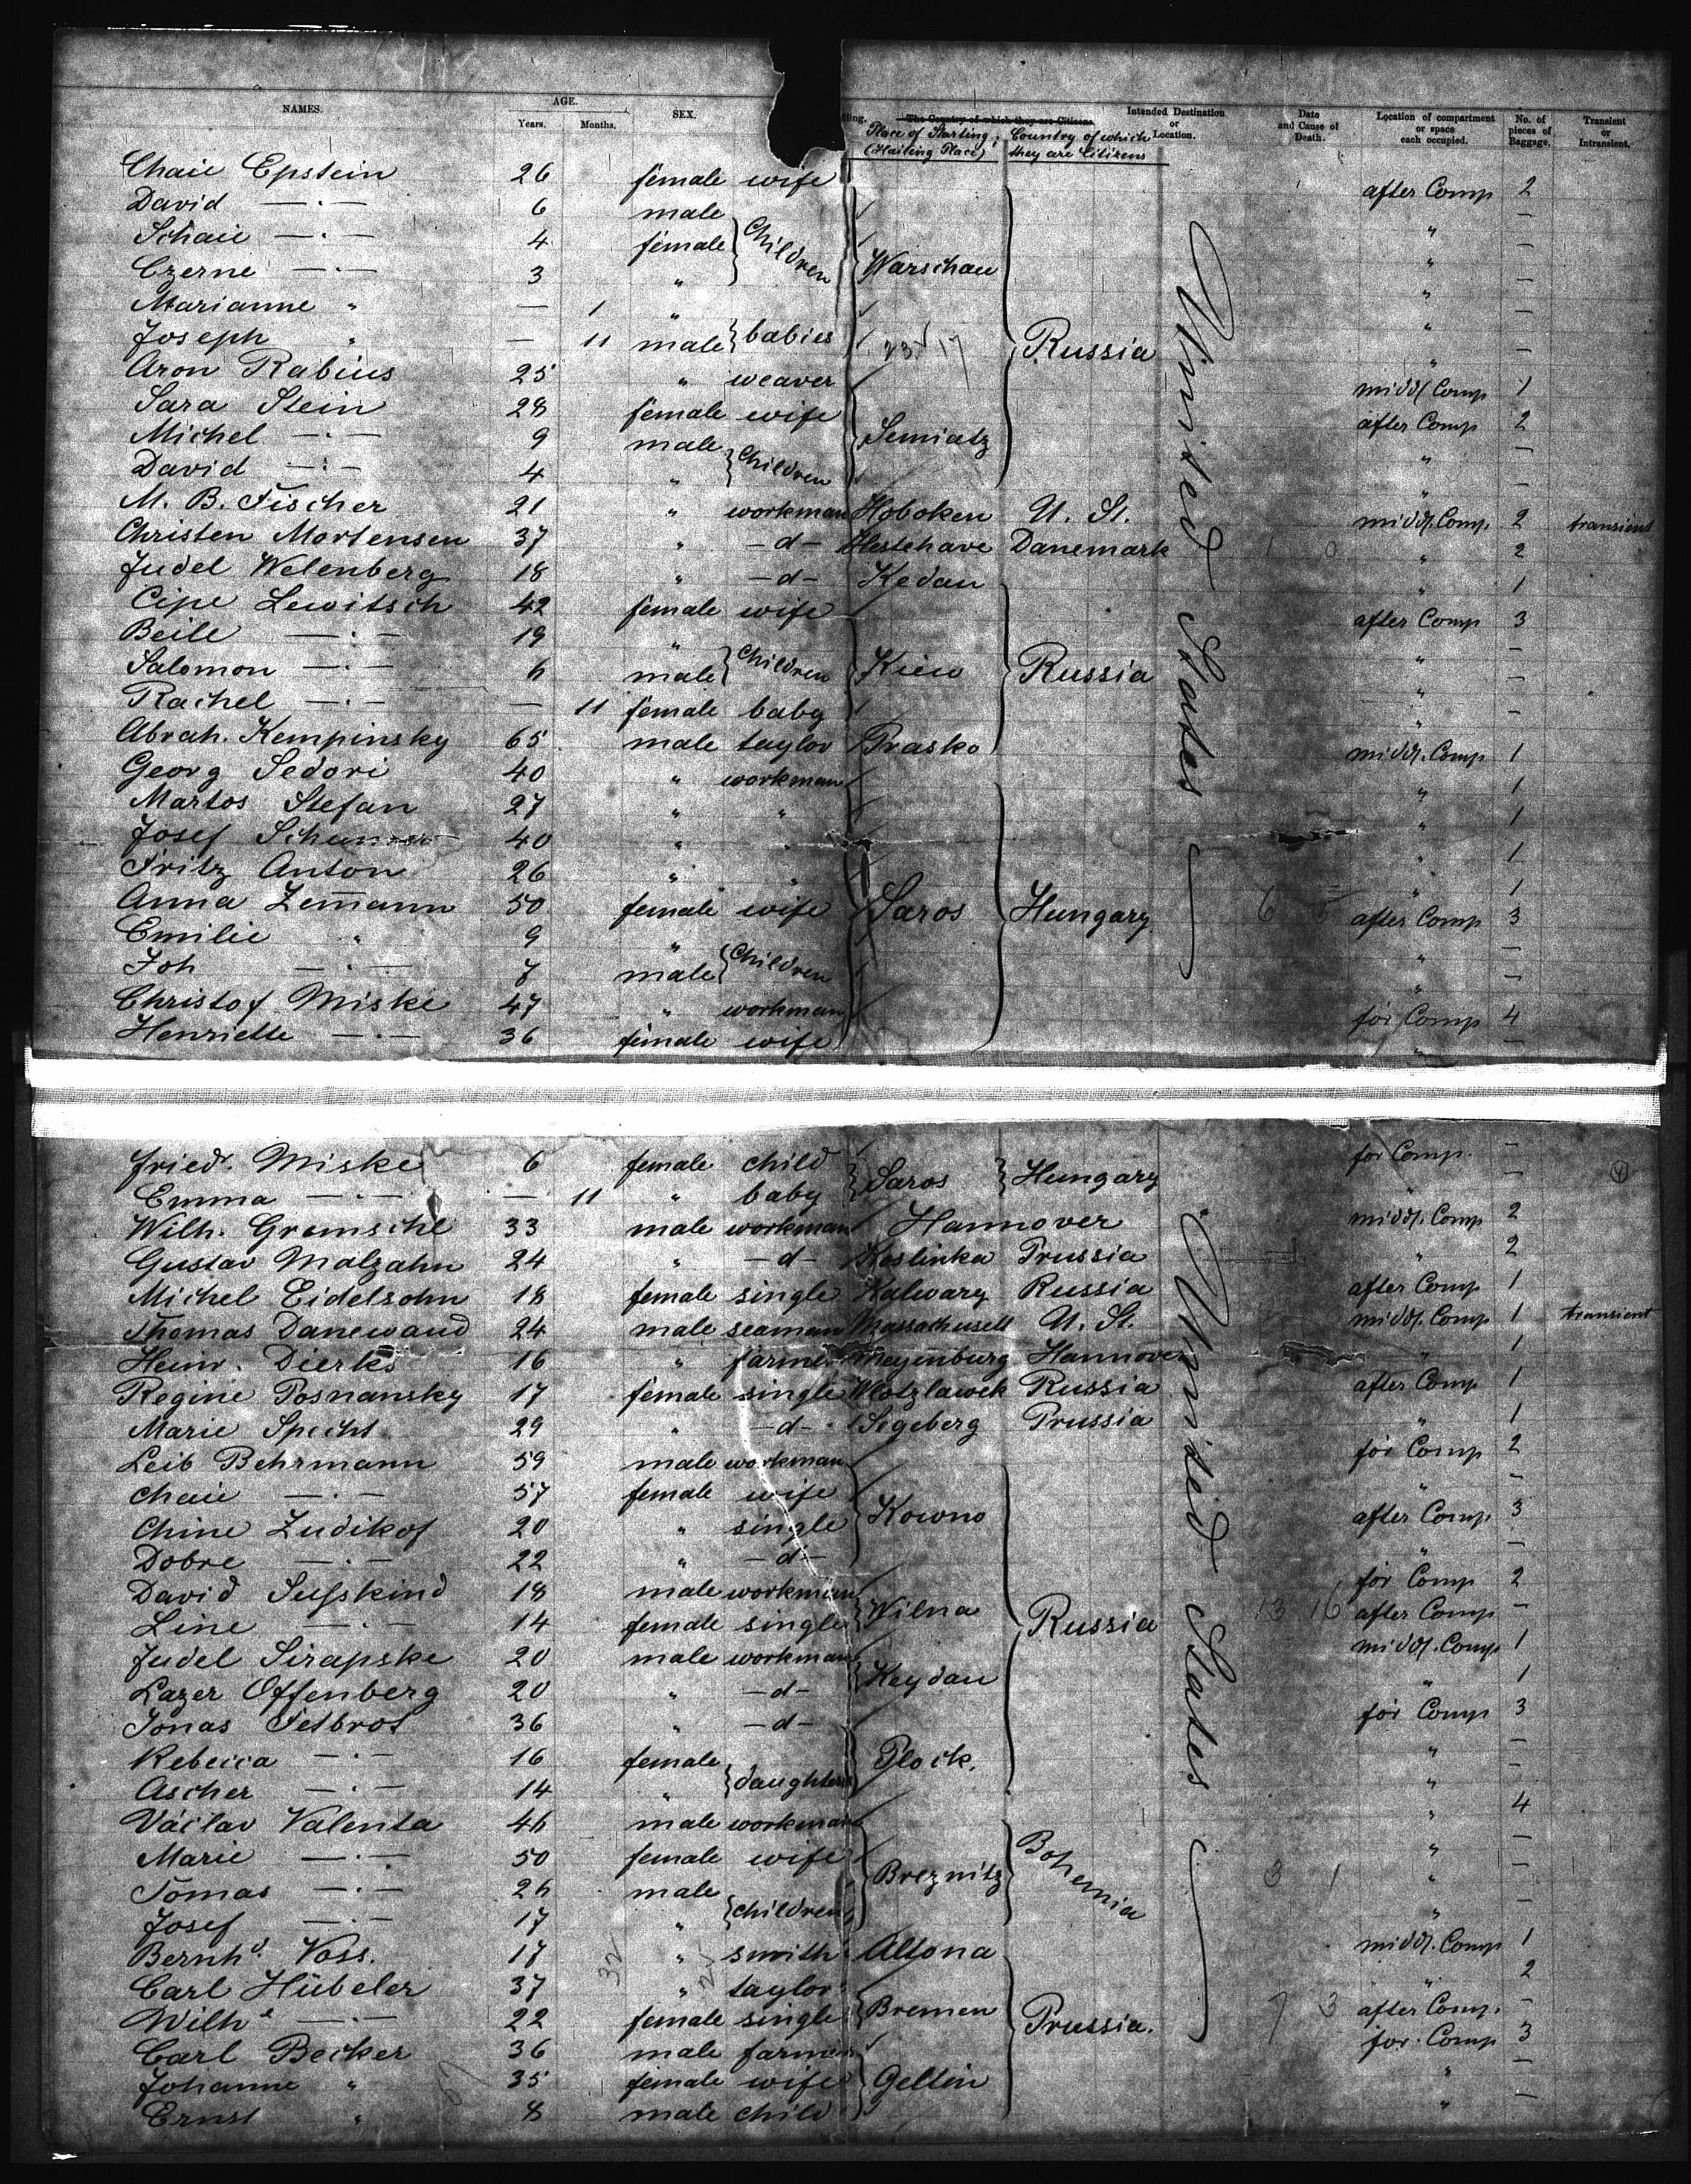 NAMES. AGE. SEX. Intended Destination Date Location of compartment No. of Transient
Years. Months. ling. The Country of which they are Citizens. or and Cause of or space pieces of or
Place of Starting; Country of which Location. Death. each occupied. Baggage. Intransient.
(Hailing Place) they are Citizens
Chaie Epstein 26 female wife after Comp 2
David —·— 6 male —
Schaie —·— 4 female Children " —
Czerne —·— 3 " Warschau " —
Marianne " — 1 " " —
Joseph " — 11 male babies 23 17 Russia " —
Aron Rabius 25 " weaver middl Comp 1
Sara Stein 28 female wife after Comp 2
Michel —·— 9 male Semiatz " —
David —·— 4 " Children " —
M. B. Fischer 21 " workman Hoboken U. St. middl. Comp. 2 transient
Christen Mortensen 37 " —d— Hestehave Danemark 1 0 " 2
Judel Welenberg 18 " —d— Kedau " 1
Cipe Lewitsch 42 female wife after Comp 3
Beile —·— 19 " " —
Salomon —·— 6 male Children Kiew Russia " —
Rachel —·— — 11 female baby " —
Abrah. Kempinsky 65 male taylor Prasko middl. Comp 1
Georg Sedori 40 " workman " 1
Martos Stefan 27 " " " 1
Josef 40 " " " 1
Fritz Anton 26 " " " 1
Anna Zemann 50 female wife Saros Hungary 6 after Comp 3
Emilie " 9 " " —
Joh —·— 7 male Children " —
Christof Miske 47 " workman for Comp 4
Henriette —·— 36 female wife " —
United States
Friedr. Miske 6 female child for Comp. —
Emma —·— — 11 " baby Saros Hungary " —
Wilh. Gramschle 33 male workman Hannover middl. Comp 2
Gustav Malzahn 24 " —d— Koslinka Prussia " 2
Michel Eidelsohn 18 female single Kalwary Russia after Comp 1
Thomas Danewand 24 male seaman Massachusett U. St. middl. Comp 1 transient
Heinr. Dierks 16 " farmer Meyenburg Hannover " 1
Regine Posnansky 17 female single Wlotzlawek Russia after Comp 1
Marie Specht 29 " —d— Segeberg Prussia " 1
Leib Behrmann 59 male workman for Comp 2
Chaie —·— 57 female wife " —
Chine Zudikof 20 " single Kowno after Comp 3
Dobre —·— 22 " —d— " —
David Susskind 18 male workman for Comp 2
Line —·— 14 female single Wilna Russia 13 16 after Comp —
Judel Sirapske 20 male workman middl. Comp 1
Lazer Offenberg 20 " —d— Keydau " 1
Jonas Fetbrot 36 " —d— for Comp 3
Rebecca —·— 16 female Plock. " —
Ascher —·— 14 " daughters " —
Václav Valenta 46 male workman " 4
Marie —·— 50 female wife " —
Tomas —·— 26 male Breznitz Bohemia 3 1 " —
Josef —·— 17 " children " —
Bernhd. Voss. 17 32 " smith Altona middl. Comp 1
Carl Hübeler 37 " taylor " 2
Wilhe —·— 22 female single Bremen Prussia. 7 3 after Comp. —
Carl Becker 36 male farmer for. Comp 3
Johanne " 35 female wife Geltin " —
Ernst " 8 male child " —
United States